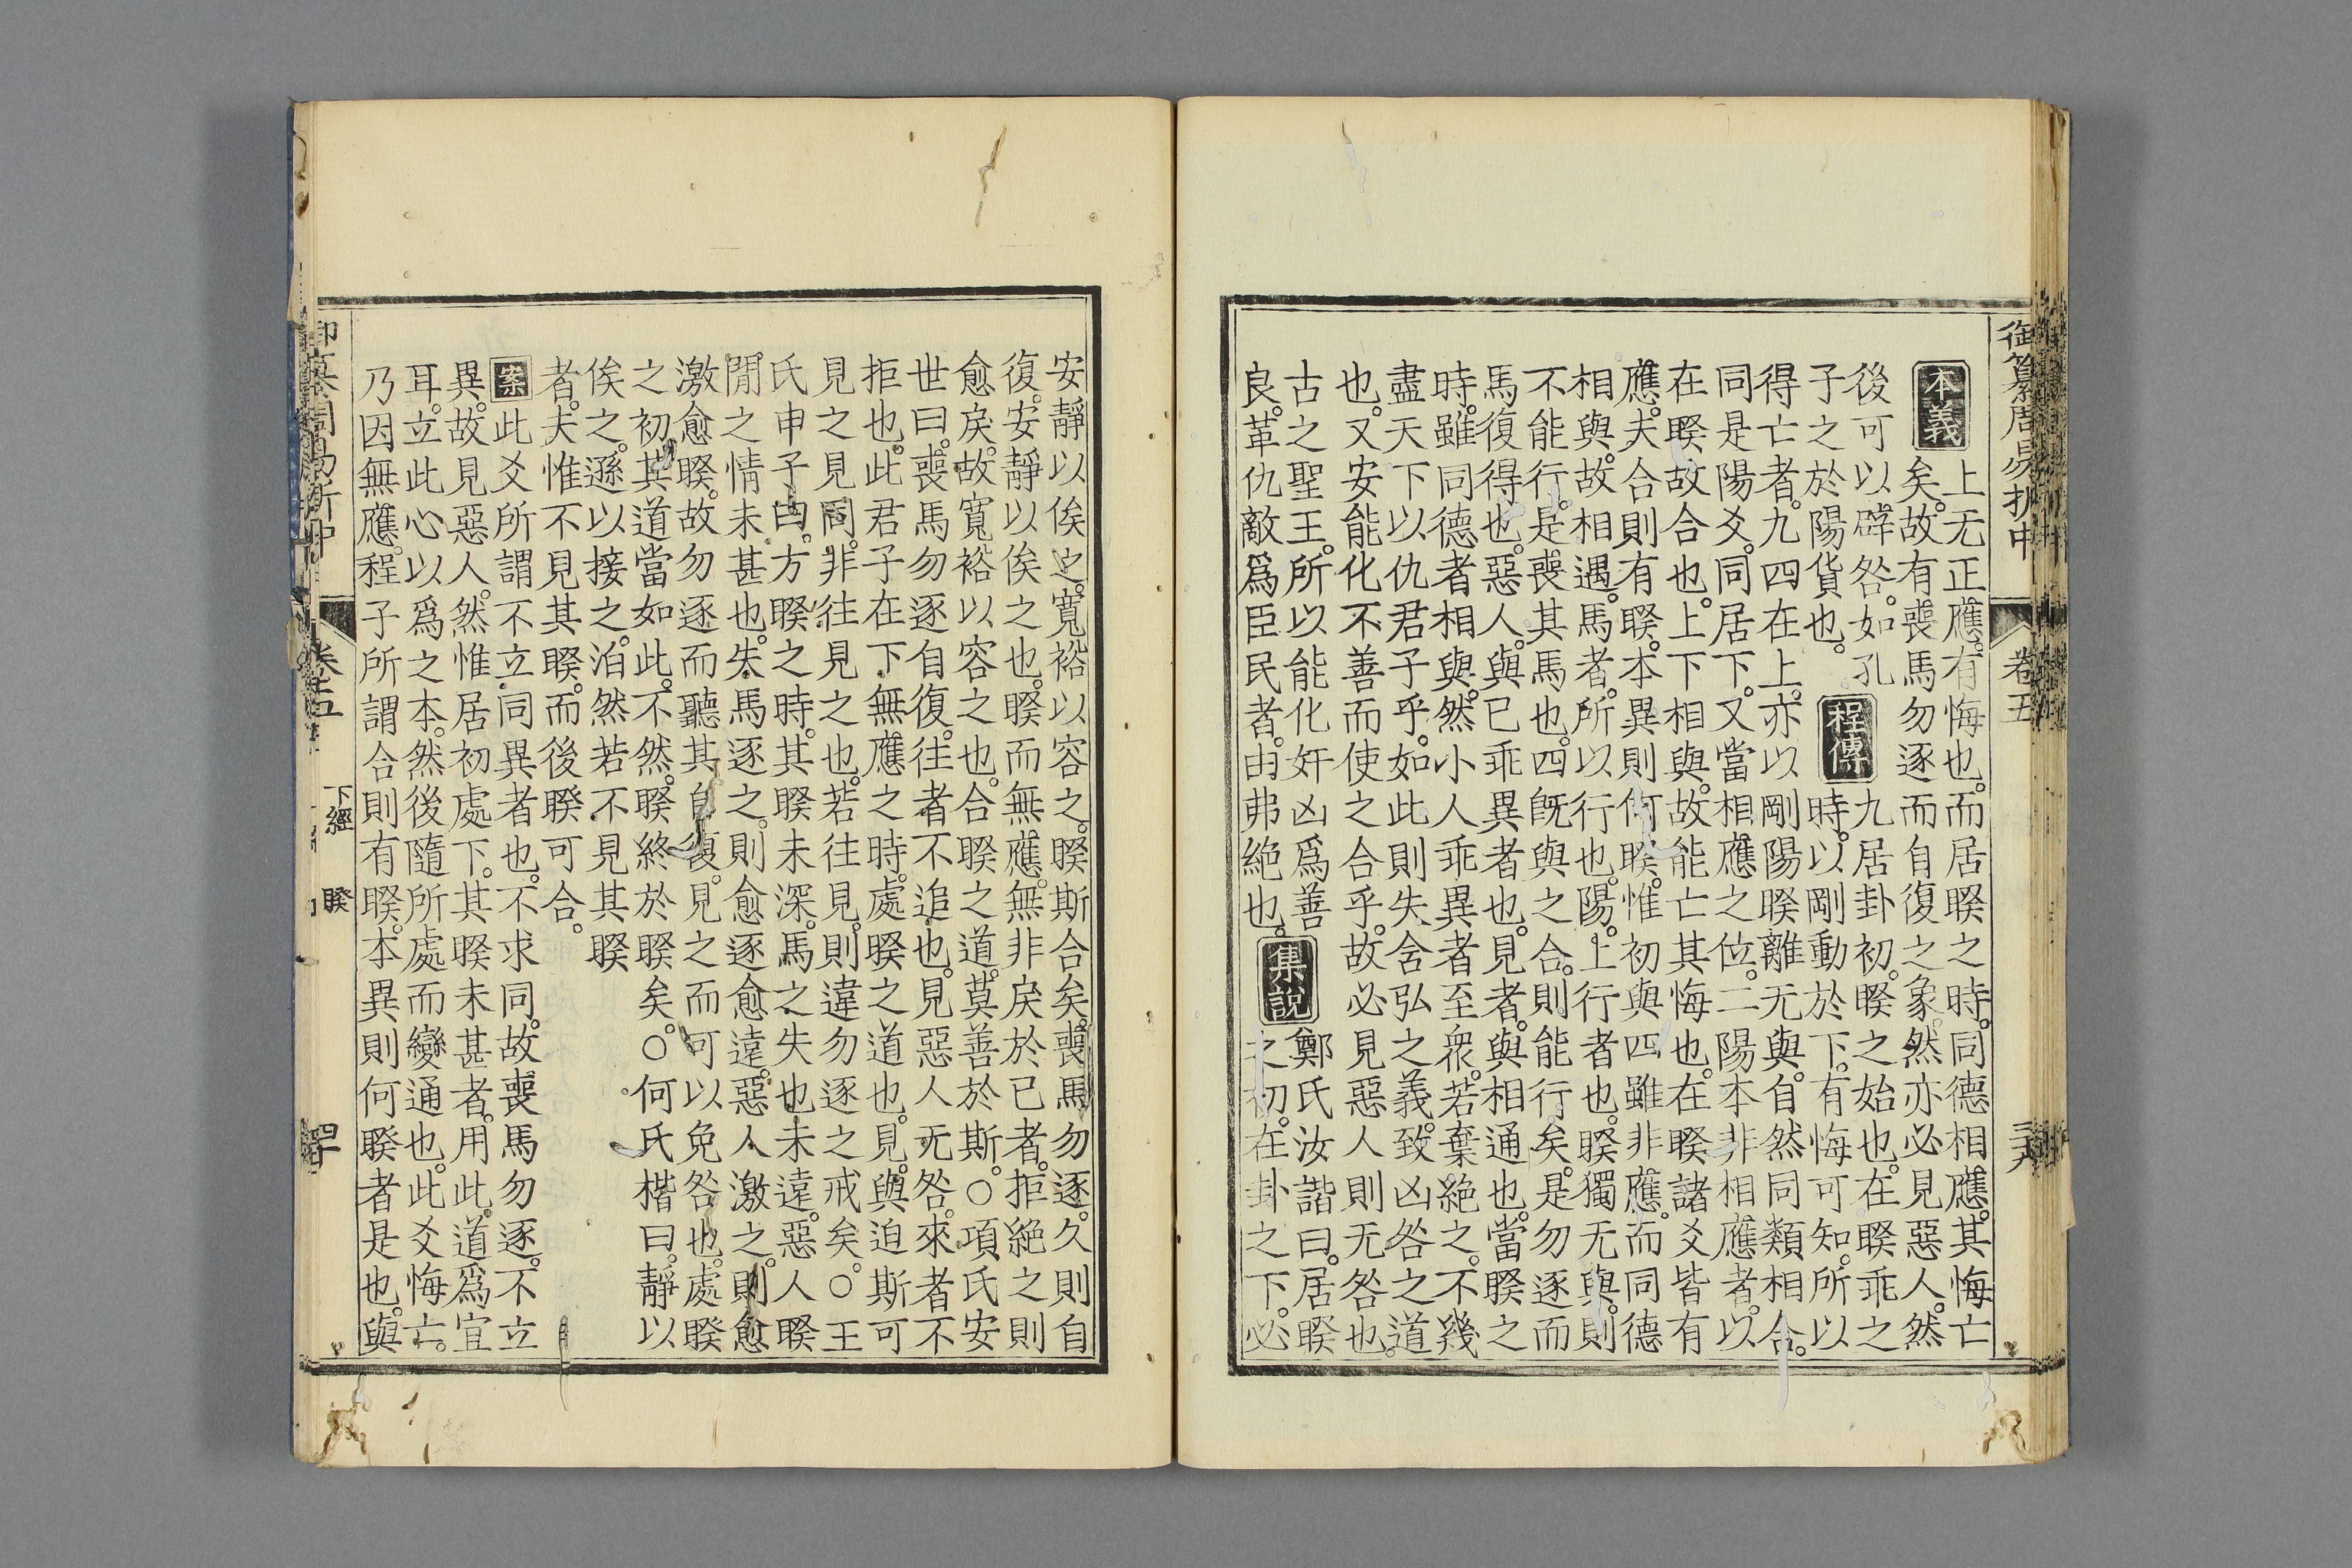 御纂周易折中 卷五 三十九
本義
上无正應。有悔也。而居睽之時。同德相應。其悔亡
矣。故有喪馬勿逐而自復之象。然亦必見惡人。然
後可以辟咎。如孔
子之於陽貨也。
程傳
九居卦初。睽之始也。在睽乖之
時。以剛動於下。有悔可知。所以
得亡者。九四在上。亦以剛陽睽離无與。自然同類相合。
同是陽爻。同居下。又當相應之位。二陽本非相應者。以
在睽故合也。上下相與。故能亡其悔也。在睽諸爻皆有
應。夫合則有睽。本異則何睽。惟初與四雖非應。而同德
相與。故相遇。馬者。所以行也。陽。上行者也。睽獨无與。則
不能行。是喪其馬也。四旣與之合。則能行矣。是勿逐而
馬復得也。惡人。與已乖異者也。見者。與相通也。當睽之
時。雖同德者相與。然小人乖異者至衆。若棄絶之。不幾
盡天下以仇君子乎。如此則失含弘之義。致凶咎之道
也。又安能化不善而使之合乎。故必見惡人則无咎也。
古之聖王。所以能化奸凶爲善
良。革仇敵爲臣民者。由弗絶也。
集說
鄭氏汝諧曰。居睽
之初。在卦之下。必
安靜以俟之。寬裕以容之。睽斯合矣。喪馬勿逐。久則自
復。安靜以俟之也。睽而無應。無非戾於已者。拒絕之則
愈戾。故寬裕以容之也。合睽之道。莫善於斯。○項氏安
世曰。喪馬勿逐自復。往者不追也。見惡人无咎。來者不
拒也。此君子在下無應之時。處睽之道也。見。與迫斯可
見之見同。非往見之也。若往見。則違勿逐之戒矣。○王
氏申子曰。方睽之時。其睽未深。馬之失也未遠。惡人睽
閒之情未甚也。失馬逐之。則愈逐愈遠。惡人激之。則愈
激愈睽。故勿逐而聽其自復。見之而可以免咎也。處睽
之初。其道當如此。不然。睽終於睽矣。○何氏楷曰。靜以
俟之。遜以接之。泊然若不見其睽
者。夫惟不見其睽。而後睽可合。
案
此爻所謂不立同異者也。不求同。故喪馬勿逐。不立
異。故見惡人。然惟居初處下。其睽未甚者。用此道爲宜
耳。立此心以爲之本。然後隨所處而變通也。此爻悔亡。
乃因無應。程子所謂合則有睽。本異則何睽者是也。與
御纂周易折中 卷五 下經 睽 四十